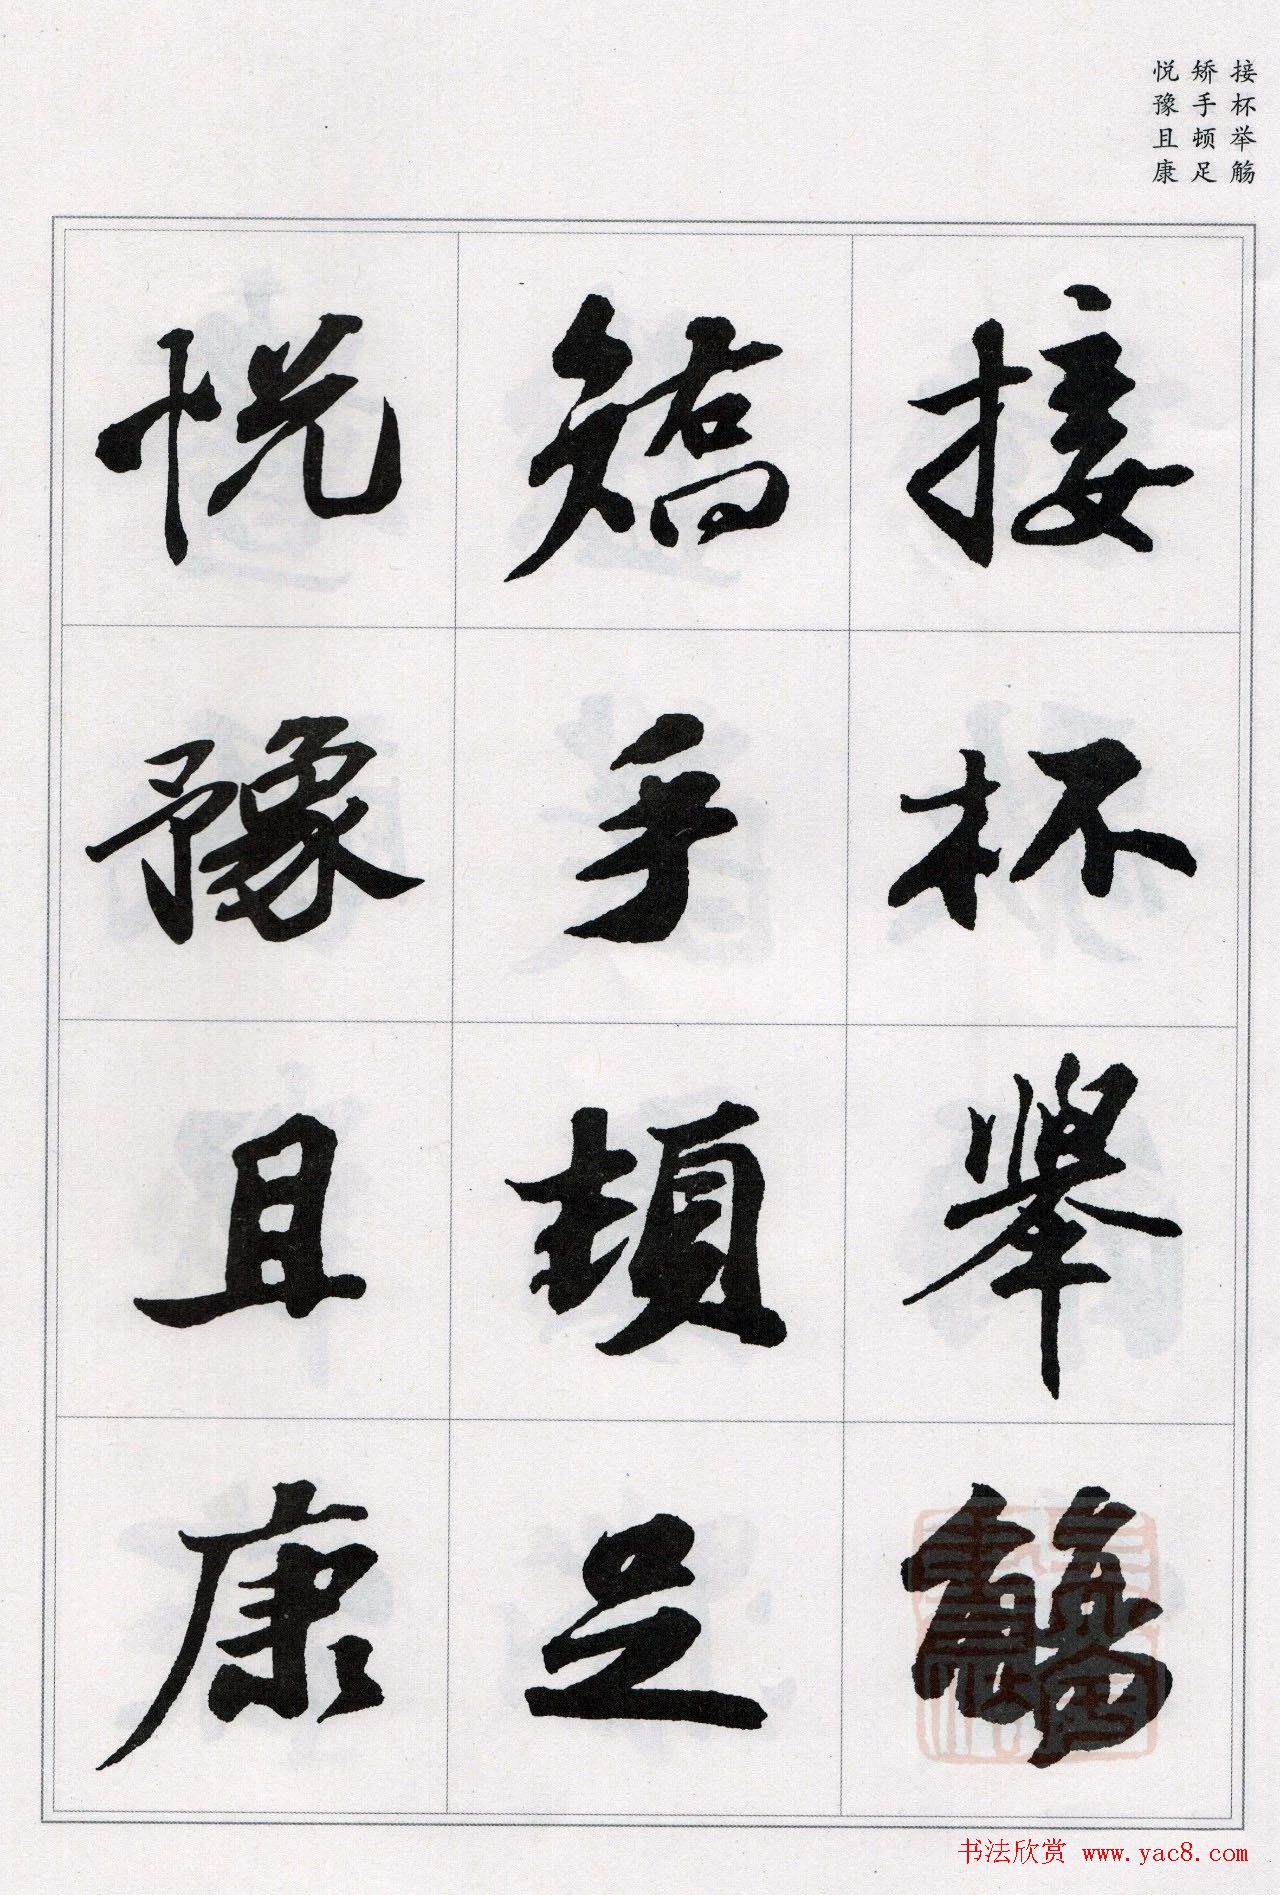 接杯举觞
矫手顿足
悦豫且康
接杯舉觴
矯手頓足
悦豫且康
书法欣赏 www.yac8.com